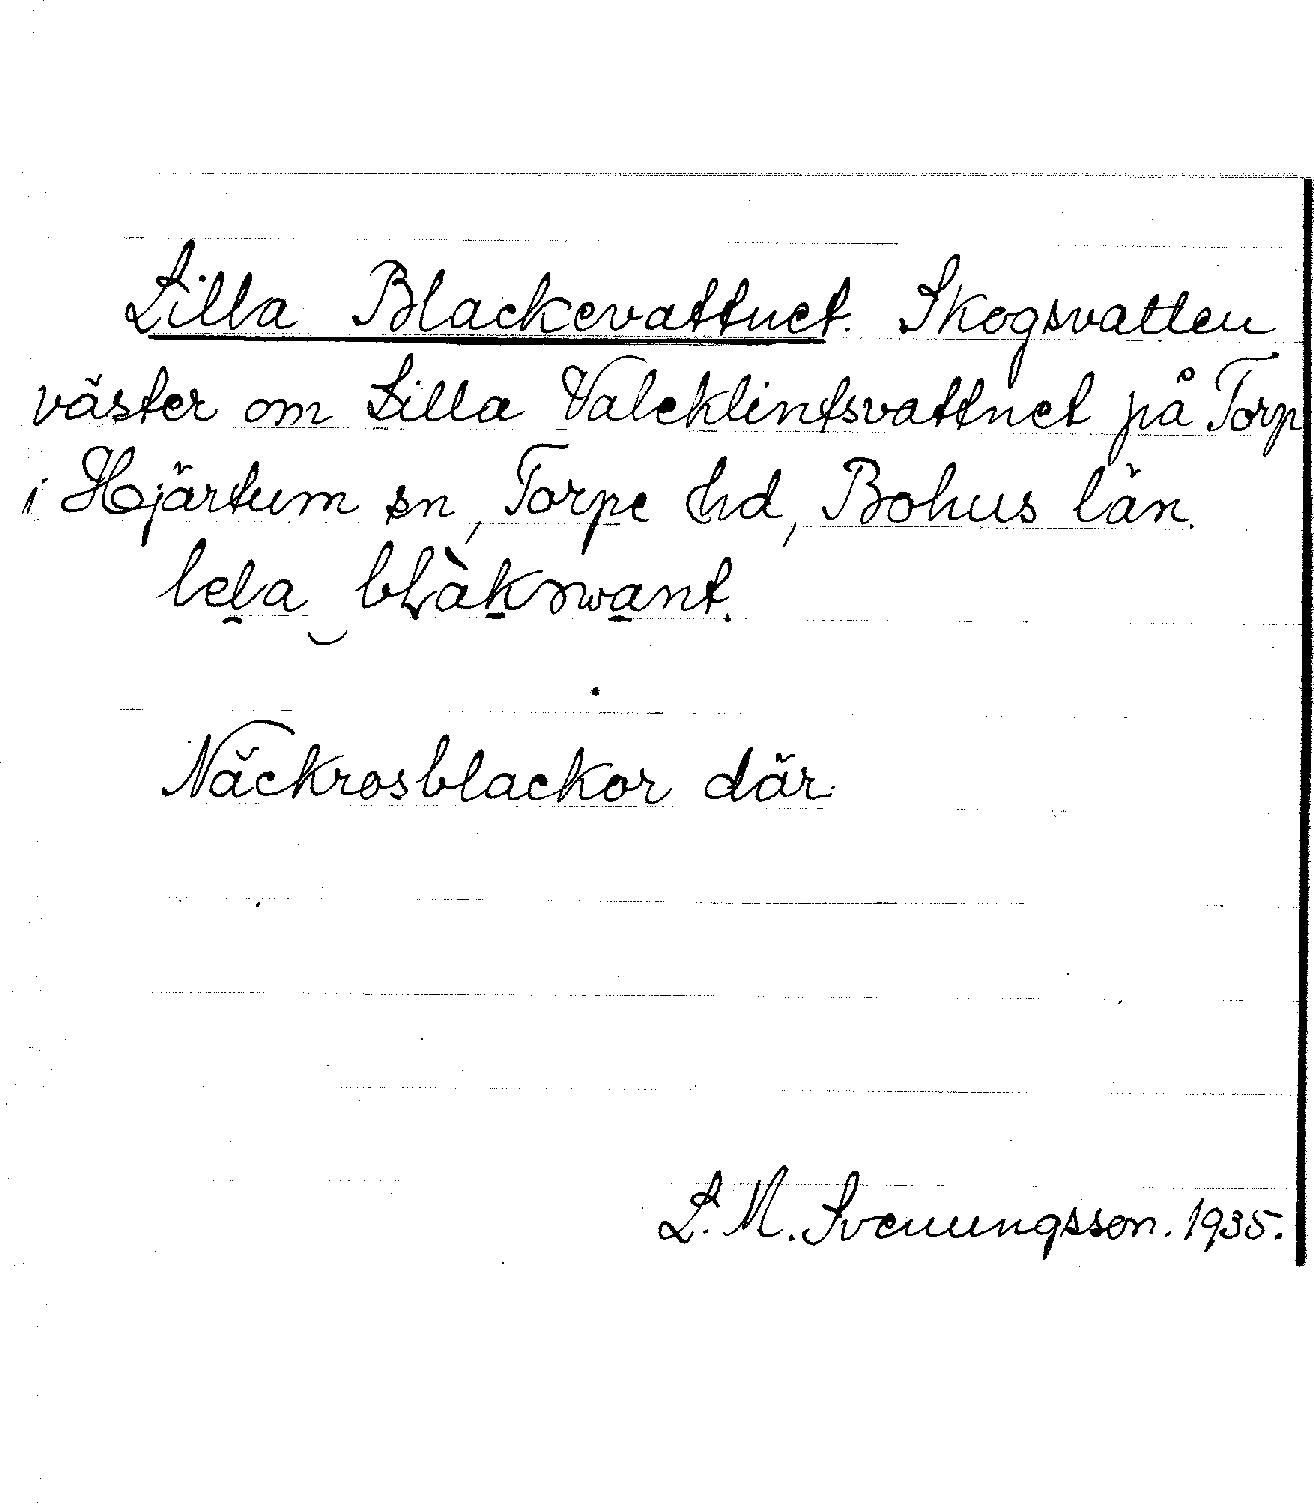 Lilla Blackevattnet. Skogsvatten
väster om Lilla Valeklintsvattnet på Torp
i Hjärtum sn, Torpe hd, Bohus län.
lela
Näckrosblackor där
L. M. Svenungsson. 1935.